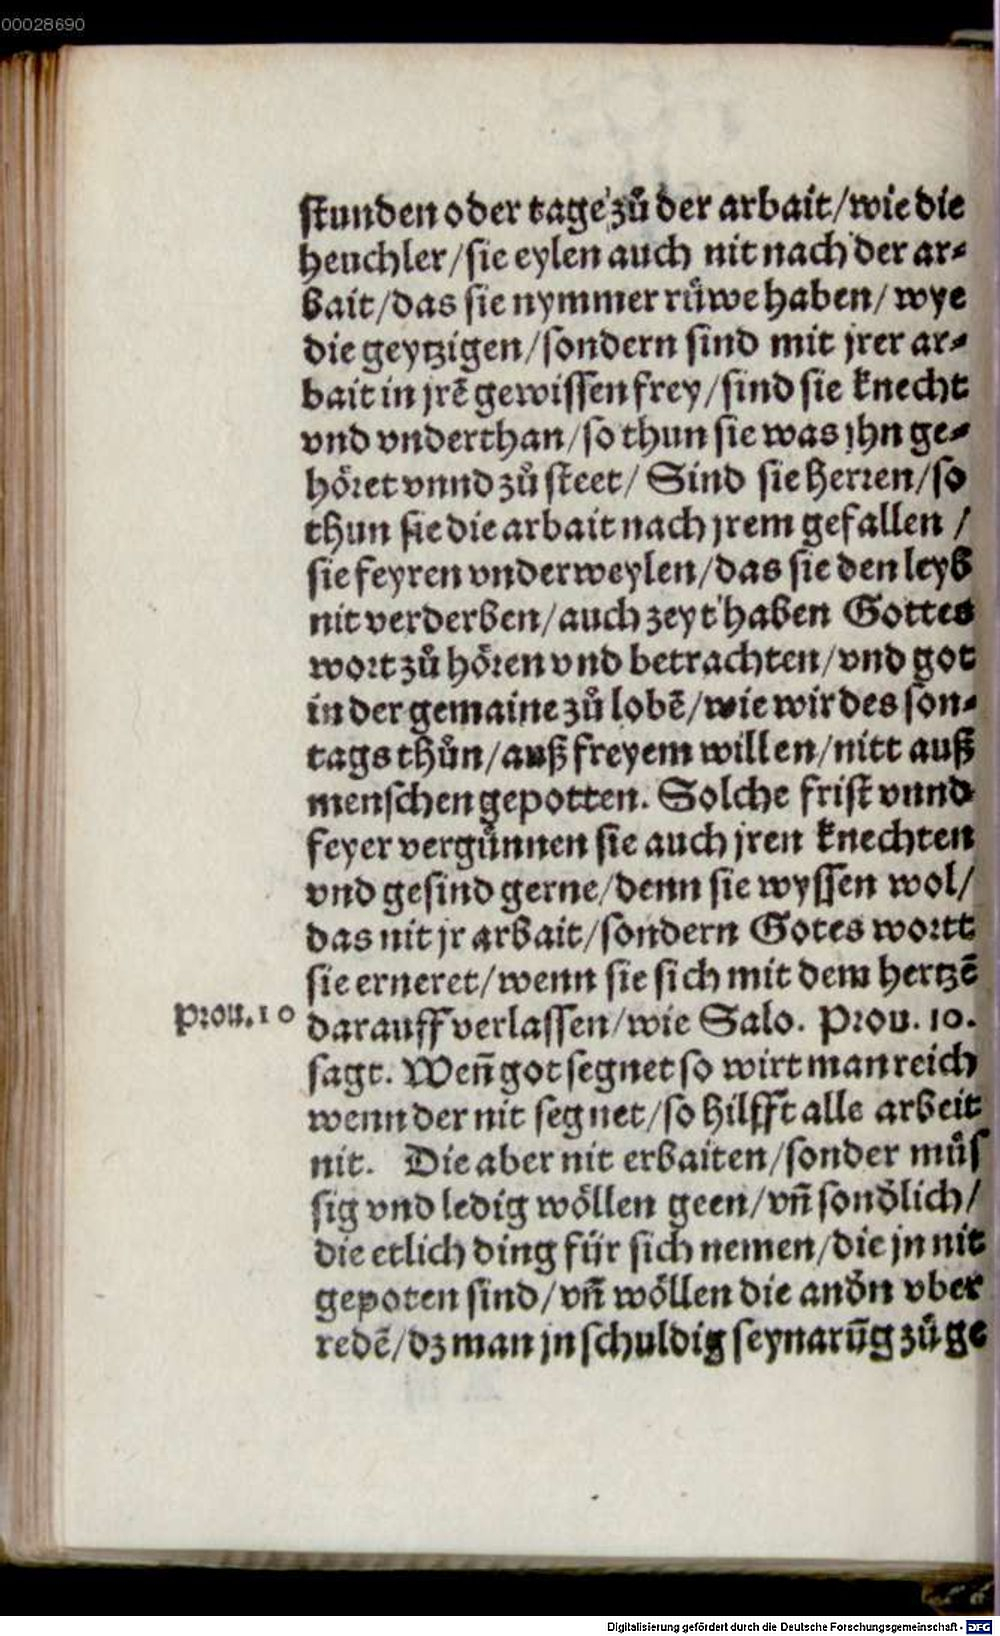 00028690
stunden oder tage zů der arbait/wie die
heuchler/sie eylen auch nit nach der ar⸗
bait/das sie nymmer růwe haben/ wye
die geytzigen/sondern sind mit jrer ar⸗
bait in jrē gewissen frey/sind sie knecht
vnd vnderthan/so thun sie was jhn ge⸗
höret vnnd zů steet/ Sind sie Herren/so
thun sie die arbait nach jrem gefallen /
sie feyren vnderweylen/das sie den leyb
nit verderben/auch zeyt haben Gottes
wort zů hören vnd betrachten/vnd got
in der gemaine zů lobē/wie wir des son⸗
tags thůn/auß freyem willen/nitt auß
menschen gepotten. Solche frist vnnd
feyer vergünnen sie auch jren knechten
vnd gesind gerne/denn sie wyssen wol/
das nit jr arbait/sondern Gotes wortt
sie erneret/wenn sie sich mit dem hertzē
Prou.10 darauff verlassen/wie Salo. Prou. 10.
sagt. Weñ got segnet so wirt man reich
wenn der nit segnet/so hilfft alle arbeit
nit. Die aber nit erbaiten/sonder můs
sig vnd ledig wöllen geen/vñ sondlich/
die etlich ding für sich nemen/die jn nit
gepoten sind/vñ wöllen die andn vber
redē/dz man jn schuldig sey narūg zů ge
Digitalisierung gefördert durch die Deutsche Forschungsgemeinschaft - DFG